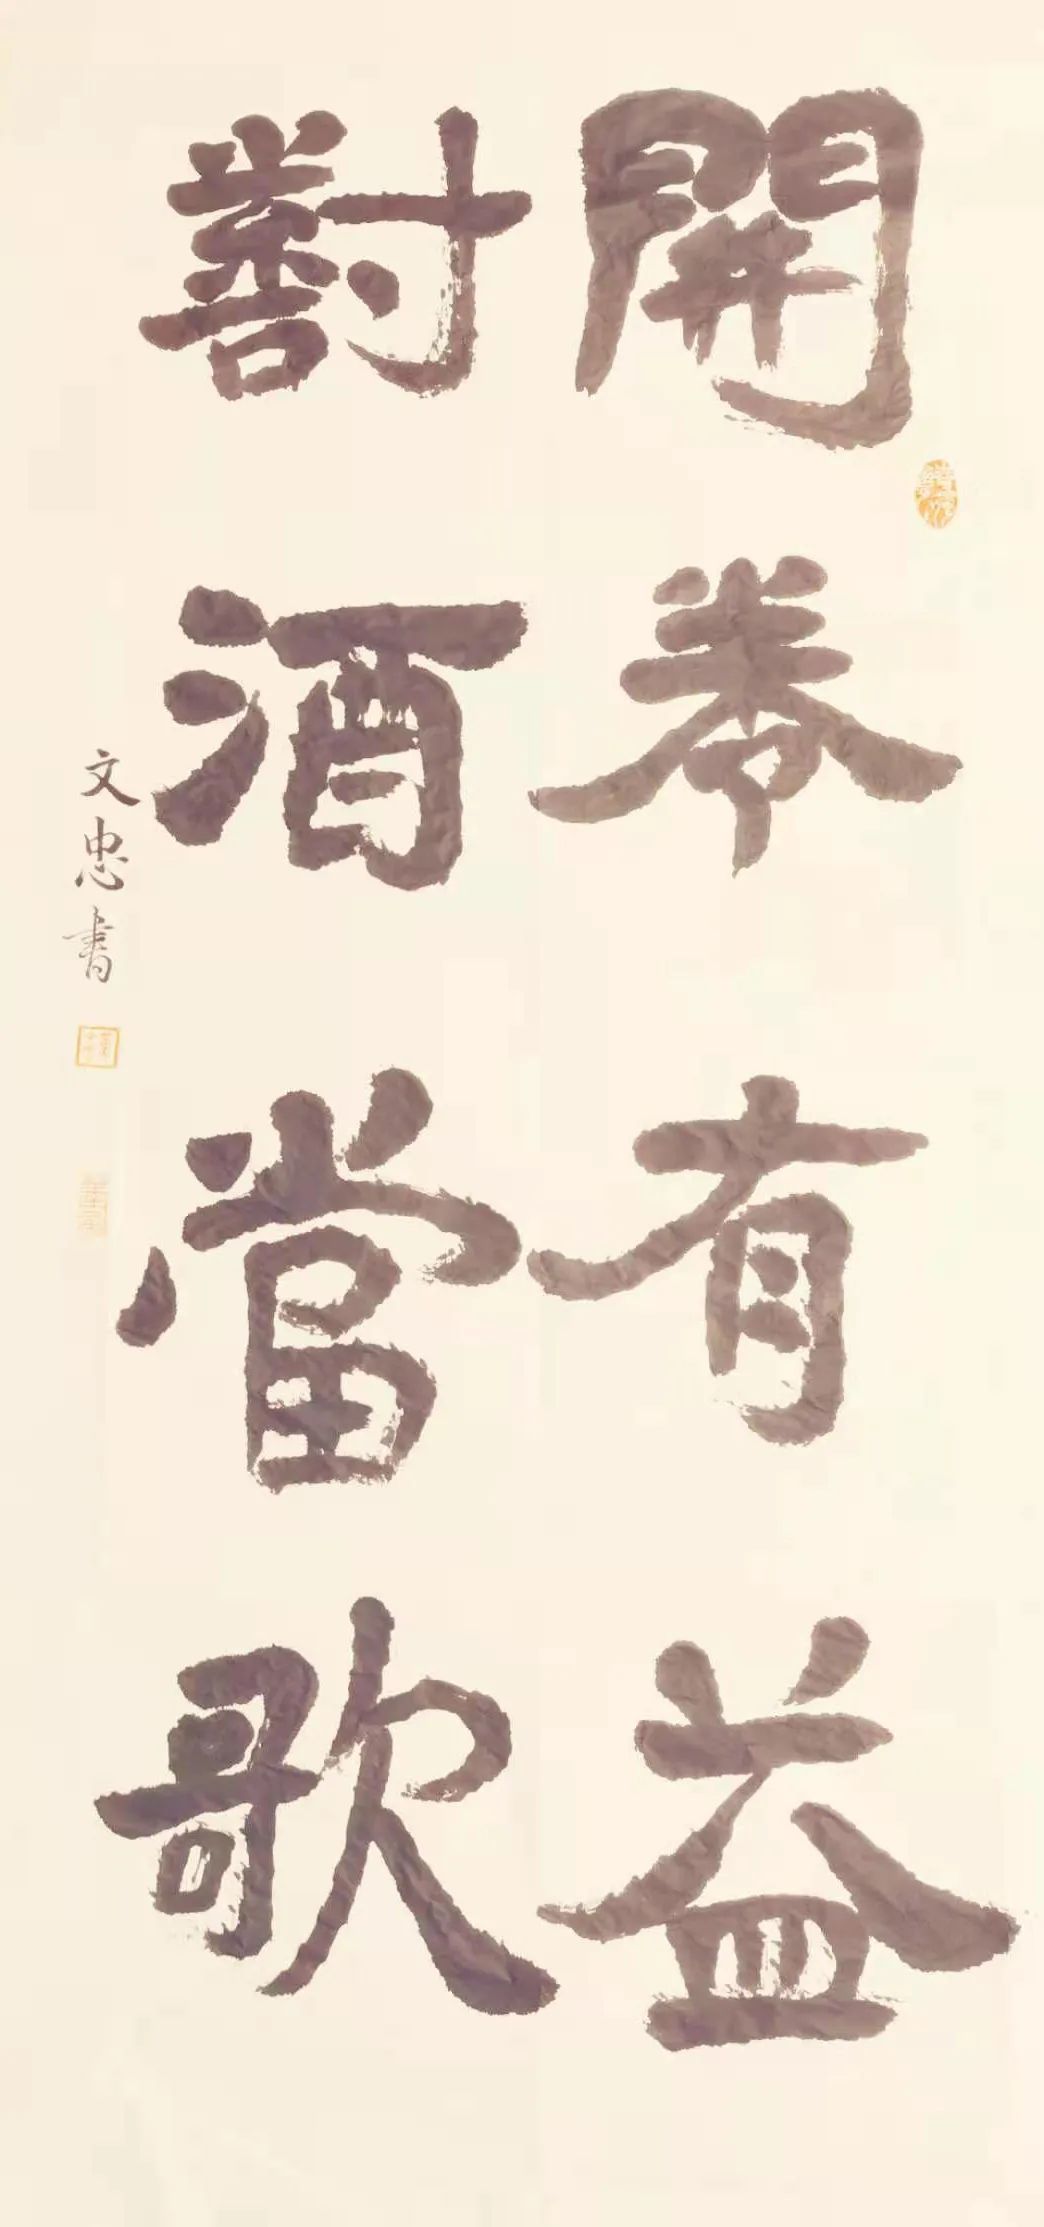 開卷有益
對酒當歌
文忠書